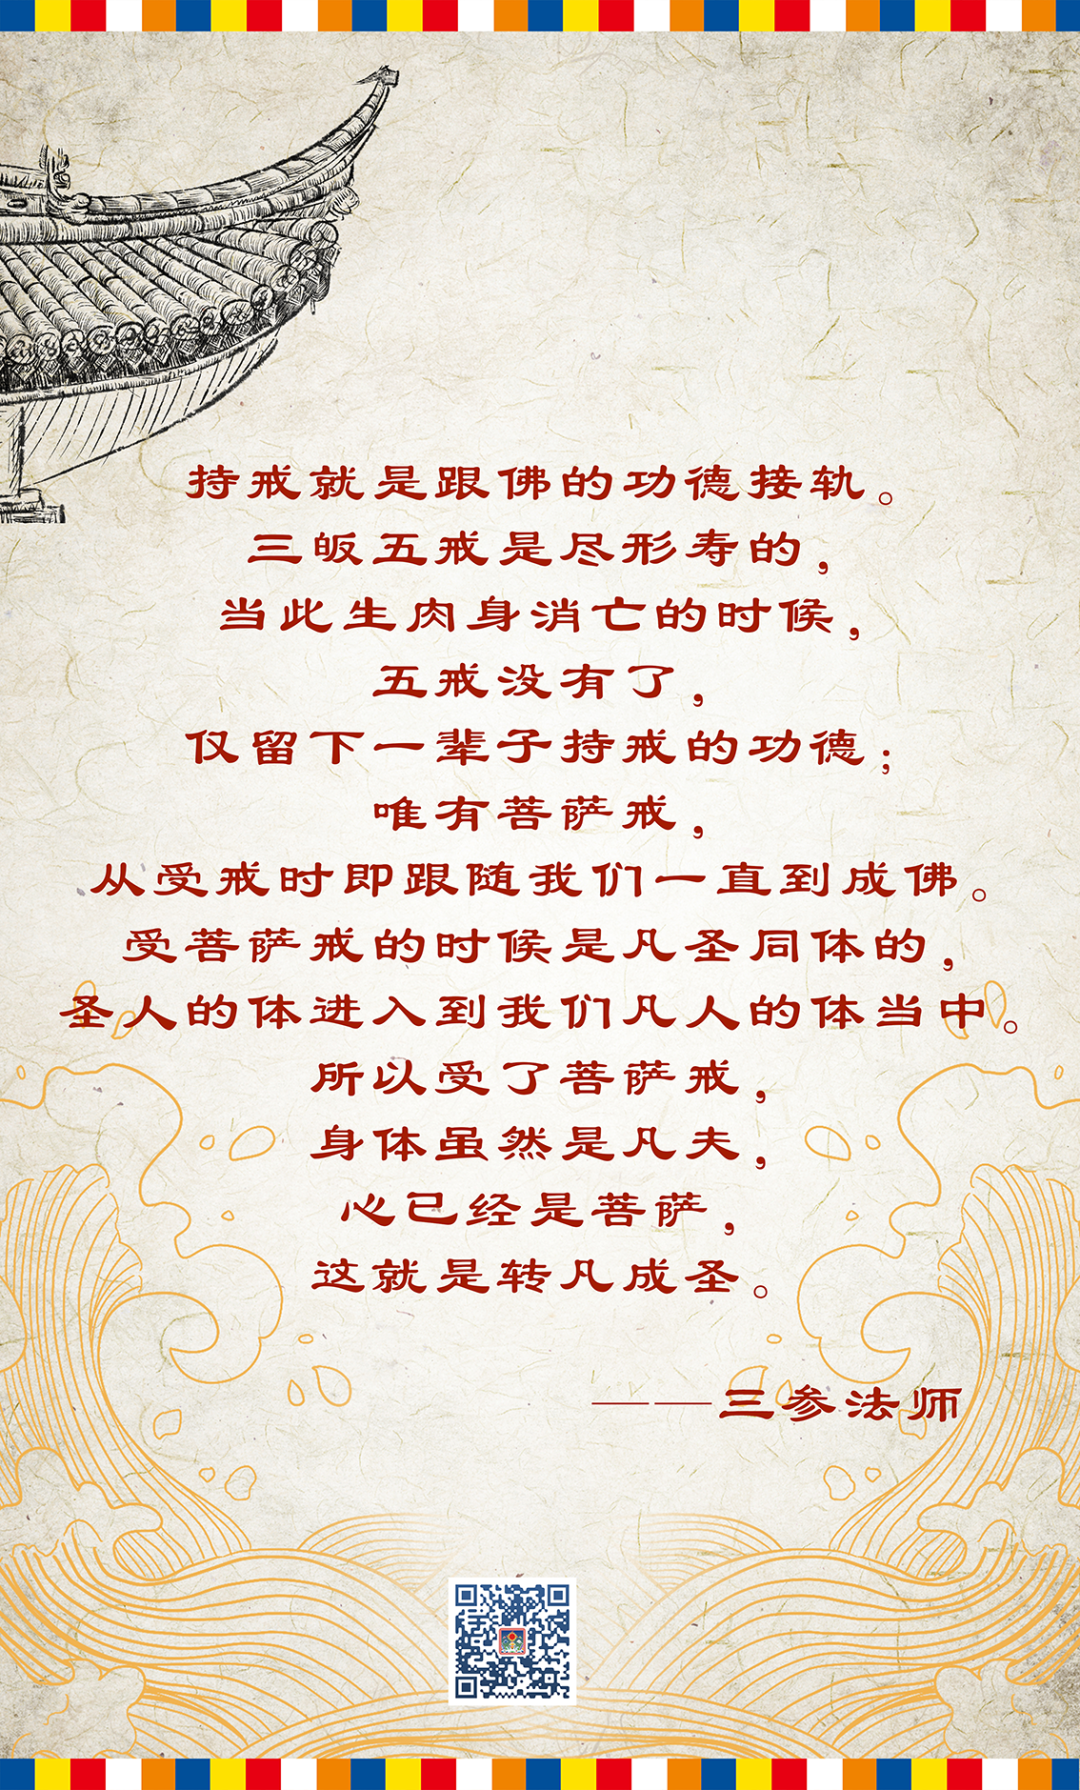 持戒就是跟佛的功德接轨。
三皈五戒是尽形寿的，
当此生肉身消亡的时候，
五戒没有了，
仅留下一辈子持戒的功德；
唯有菩萨戒，
从受戒时即跟随我们一直到成佛。
受菩萨戒的时候是凡圣同体的，
圣人的体进入到我们凡人的体当中。
所以受了菩萨戒，
身体虽然是凡夫，
心已经是菩萨，
这就是转凡成圣。
——三参法师